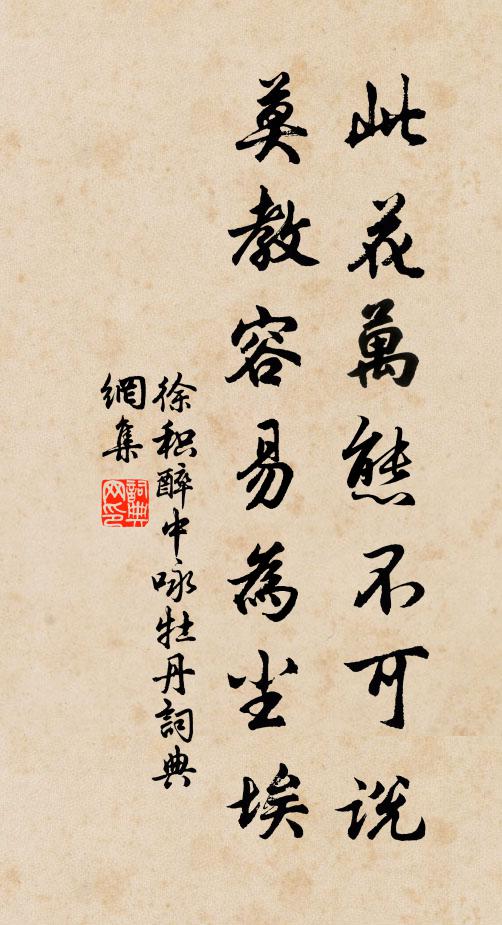 此花萬態不可說
莫教容易為尘埃
徐积醉中咏牡丹詞典
網集
詞典
网印